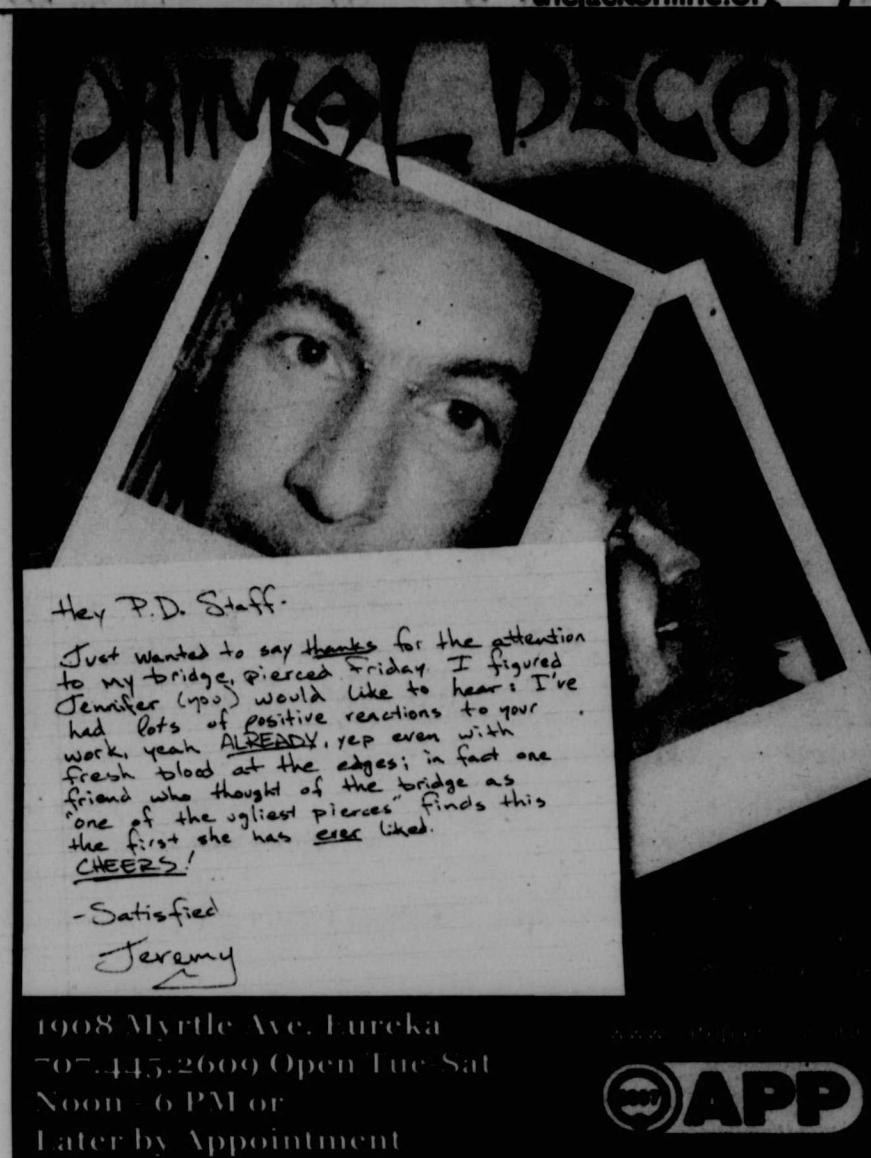 PRIMAL DECOR
Hey P.D. Staff-
Just wanted to say thanks for the attention
to my bridge, pierced Friday. I figured
Jennifer (you) would like to hear: I've
had lots of positive reactions to your
work, yeah ALREADY, yep even with
fresh blood at the edges; in fact one
friend who thought of the bridge as
"one of the ugliest pierces" finds this
the first she has ever liked.
CHEERS!
-Satisfied
Jeremy
1908 Myrtle Ave. Eureka
707.445.2609 Open Tue-Sat
Noon - 6 PM or
Later by Appointment
APP